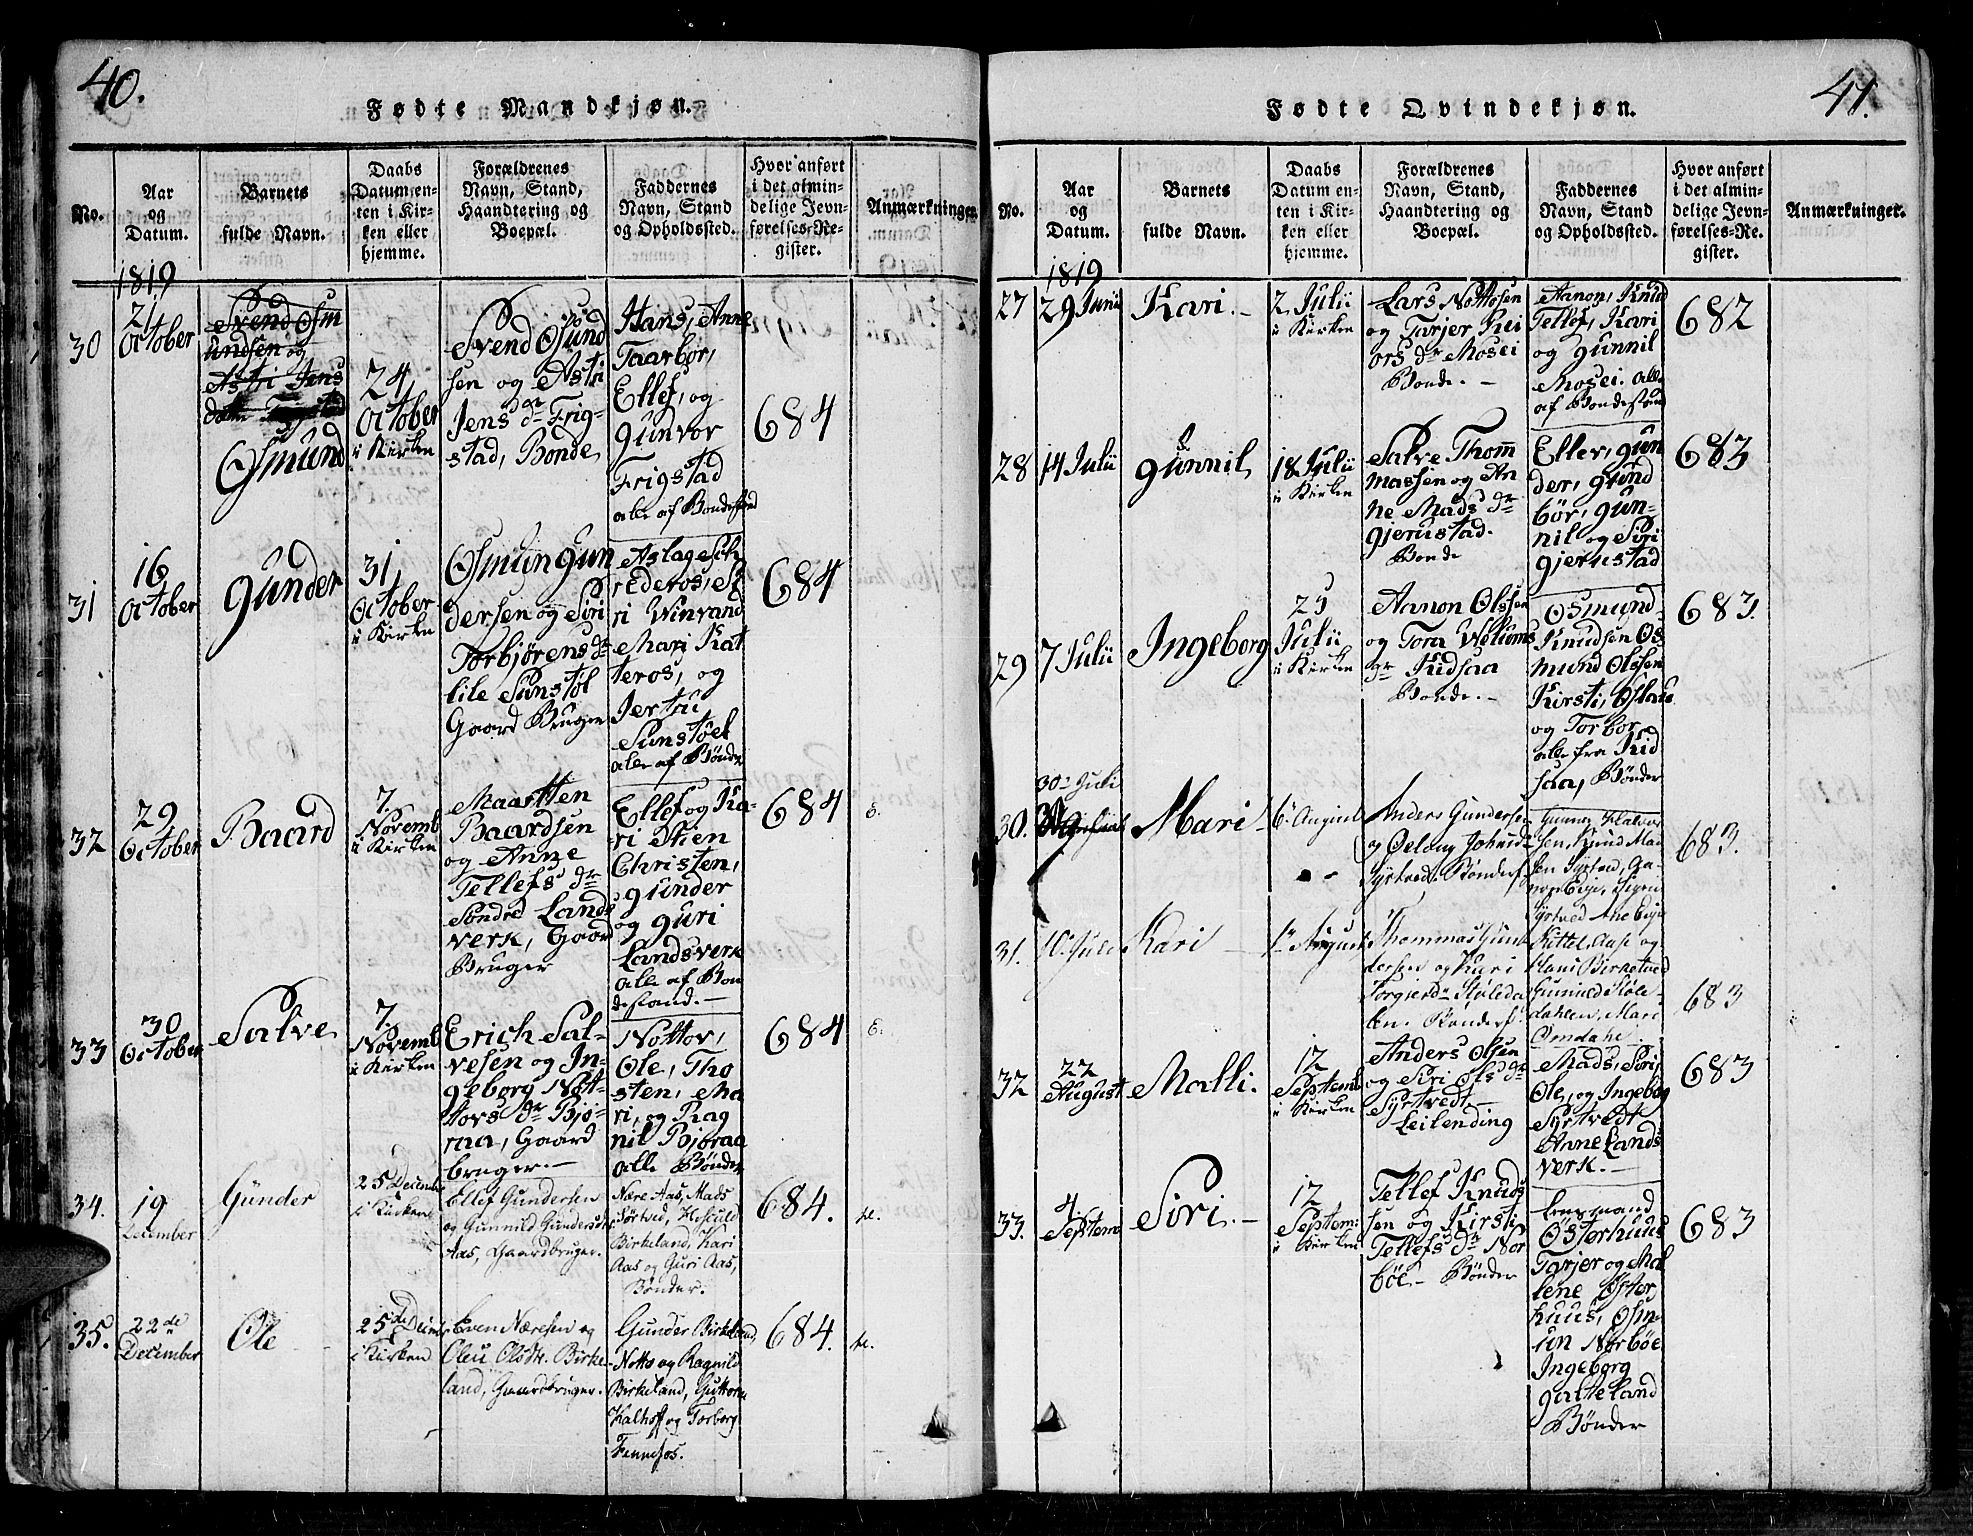 40.
Fødte Mandkjøn.
No.
Aar
og
Datum.
Barnets
fulde Navn.
Daabs
Datum en-
ten i Kir-
ken eller
hjemme.
Forældrenes
Navn, Stand,
Haandtering og
Boepæl.
Faddernes
Navn, Stand
og Opholdssted.
Hvor anført
i det almin-
delige Jevn-
førelses-Re-
gister.
Anmærkninger.
1819
30
21
October
Svend Osm
undsen og
Astri Jens
Osmund
24
October
i Kirken
Svend Osmund
sen og Astri
Jens dr Frig-
stad, Bonde
Hans, Anne
Taarbor,
Ellef, og
Gunvor
Frigstad
alle af Bondestand
684
31
16
October
Gunder
31
October
i Kirken
Osmun Gun
dersen og Siri
Torbjørens dr
lile Sunstøl
Gaard Bruger
Aslag Sch
rederos, Si
ri Winvand
Mari Kat
teros, og
Jertru
Sunstøel
alle af Bønder
684
32
29
October
Baard
7
Novemb
i Kirken
Maartten
Baardsen
og Anne
Tellefs dr
Søndre Lands
verk, Gaard
Bruger
Ellef og Ka-
ri Stien
Christen,
Gunder
og Guri
Landsverk
alle af Bon
destand.
684
E.
33
30
October
Salve
7
Novemb
i Kirken
Erich Sal-
vesen og In-
geborg Nøt-
tovs dr Bjo-
raa, Gaard
bruger.
Nottov,
Ole, Tho
sten, Ma
ri, og Rag
nil Bjoraa
alle Bønder
684
E.
34.
19
December
Gunder
25 December
i Kirken
Ellef Gundersen
og Gunnild Gundersdr
Aas, Gaardbruger.
Nære Aas, Mads
Sørtved,
Birkeland, Kari
Aas og Guri Aas,
Bønder.
684.
35.
22de
December
Ole
25de Decemb
i Kirken
Even Næresen og
Oleu Olsdtr. Birke
land, Gaardbruger.
Gunder Birkeland
Notto og Ragnild
Birkeland, Guttorm
Kalhof og Torborg
Fennefos.
684.
41.
Fødte Qvindekjøn.
No.
Aar
og
Datum.
Barnets
fulde Navn.
Daabs
Datum en-
ten i Kir-
ken eller
hjemme.
Forældrenes
Navn, Stand,
Haandtering og
Boepæl.
Faddernes
Navn, Stand
og Opholdssted.
Hvor anført
i det almin-
delige Jevn-
førelses-Re-
gister.
Anmærkninger.
1819
27
29 Junii
Kari.
2 Julii
i Kirken
Lars Nottosen
og Tarjer Rei
ors dr Mosei
Bonde.
Aanon, Knud
Tellef, Kari
og Gunnil
Mosei. alle
af Bondestand
682
28
14 Julii
Gunnil
18 Julii
i Kirken
Salve Thom
massen og An
ne Mads dr
Gjerustad.
Bonde
Ellev, Gun
der, Gund
bór, Gun-
nil og Siri
Gjerustad
683
29
7 Julii
Ingeborg
25
Julii
i Kirken
Aanon Olssen
og Tora Welums
dr Kidsaa
Bonde.
Osmund
Knudsen Os
mund Olssen
Kirsti, Aslau
og Torbor
alle fra Kid
saa, Bønder
683.
30.
30te Juli
Mari
6te August
Anders Gunderse
og Oelaug Johnsdr
Syrtved. Bønderf.
Gunnar Halvor
sen, Knud Mad
sen Syrtved, Gu-
nvor Evje, Signe
Syrtved Ane Evje
683.
31.
10de Juli
Kari
1te August
Thommas Gun
dersen og Kari
Torgiersdr Støleda
len. Bønderf.
Kittel, Aase og
Hans Birketved
Gunnild Støle-
dahlen, Mari
Omdahl.
683
32
22
August
Malli.
12
Septemb
i Kirken
Anders Olsen
og Siri Ols dr
Syrtvedt
Leilending
Mads, Siri,
Ole, og Ingeborg
Syrtvedt
Anne Lands
verk.
683
33.
4
Septem
Siri.
12
Septem:
i Kirken
Tellef Knuds
sen og Kirsti
Tellefs dr Nor
bøe - Bønder
Lensmand
Østerhuus
Tarjer og Ma
lene Øster
huus, Osm-
un Norbøe
Ingeborg
Galteland
Bønder
683